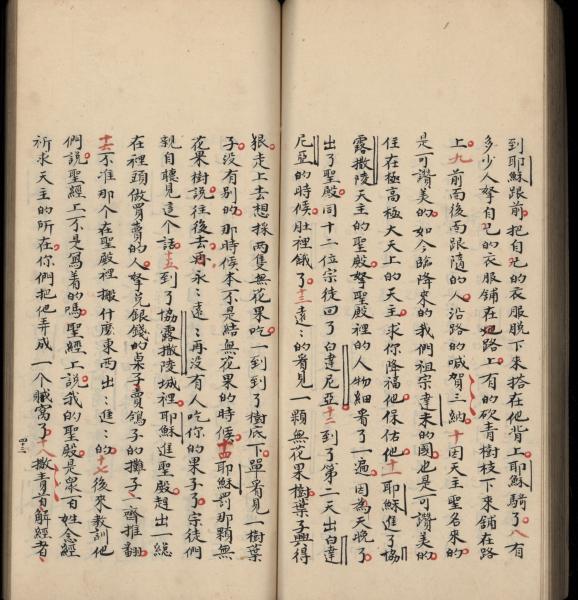 到耶穌跟前把自己的衣服脫下來搭在他背上耶穌騎了八有
多少人拏自己的衣服鋪在路上有的砍青樹枝下來鋪在路
上九前面後面跟隨的人沿路的喊賀三納十因天主聖名來的
是可讚美的如今臨降來的我們祖宗達未的國也是可讚美的
住在極高極大天上的天主求你降福他保佑他十一耶穌進了協
露撒陵天主的聖殿拏聖殿裡的人物細看了一遍因為天晚了
出了聖殿同十二位宗徒回了白達尼亞十二到了第二天出白達
尼亞的時候肚裡餓了十三遠遠的看見一顆無花果樹葉子興得
狠走上去想採兩隻無花果吃一到到了樹底下單看見一樹葉
子沒有別的那時候本不是結無花果的時候十四耶穌罰那顆無
花果樹說往後去再永遠再沒有人吃你的果子了宗徒們
親自聽見這個話十五到了協露撒陵城裡耶穌進聖殿趕出一總
在裡頭做買賣的人拏兌銀錢的桌子賣鴿子的攤子一齊推翻
十六不准那个在聖殿裡搬什麼東西出出進進的十七後來教訓他
們說聖經上不是寫着的嗎聖經上說我的聖殿是眾百姓念經
祈求天主的所在你們把他弄成一个賊窩了十八撒責首解經者
四三